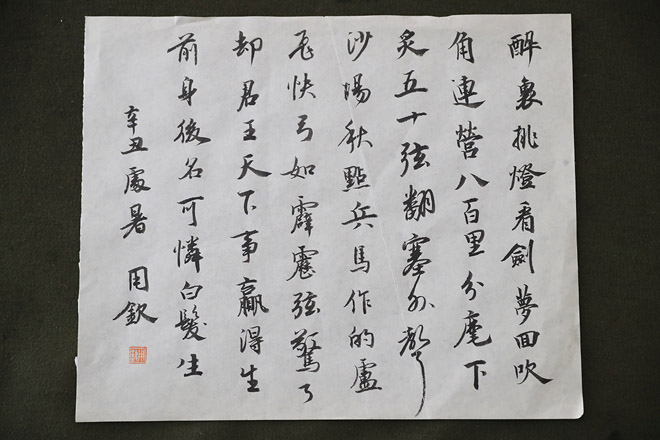 醉裏挑燈看劍夢回吹
角連營八百里分麾下
炙五十弦翻塞外聲
沙場秋點兵馬作的盧
飛快弓如霹靂弦驚了
却君王天下事贏得生
前身後名可憐白髮生
辛丑處暑 周欽